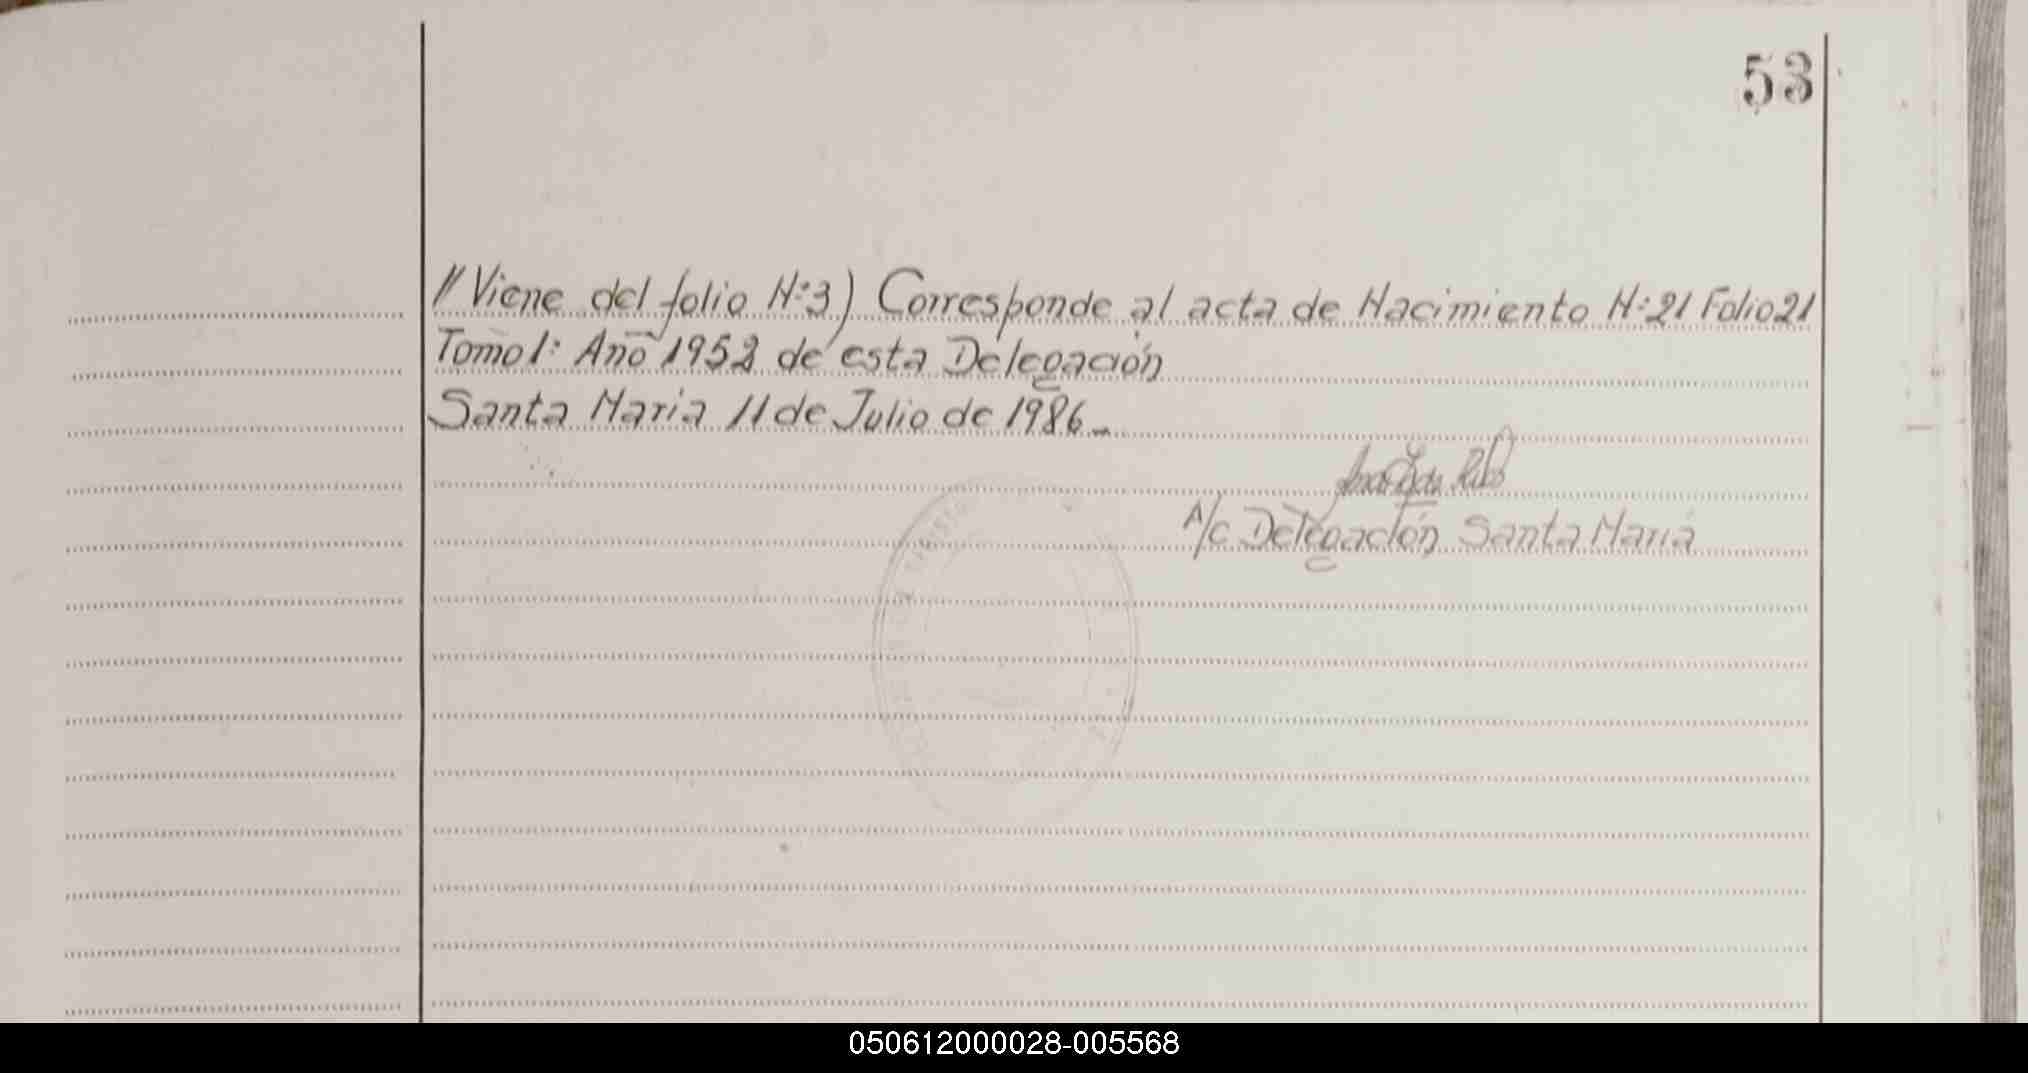 53
//Viene del folio N:3) Corresponde al acta de Nacimiento N:21 Folio 21
Tomo 1: Año 1952 de esta Delegación
Santa Maria 11 de Julio de 1986_
A/C Delegación Santa Maria
050612000028-005568